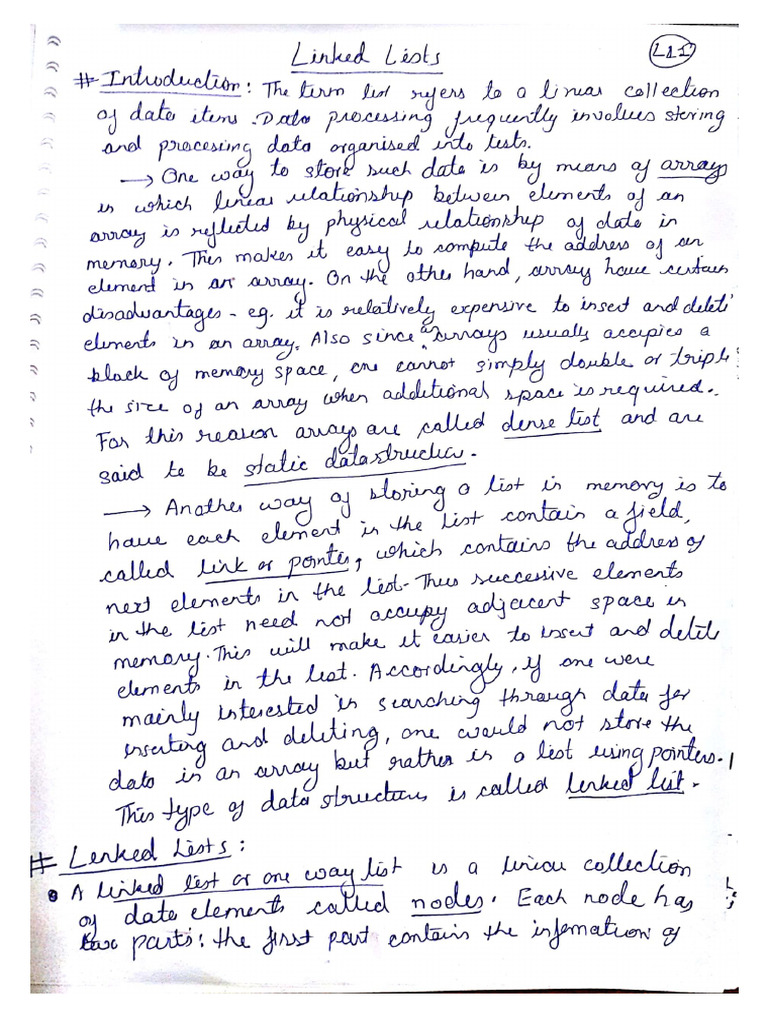 Linked Lists
L1I
# Introduction: The term list refers to a linear collection
of data items. Data processing frequently involves storing
and processing data organised into tests.
→ One way to store such data is by means of arrays
is which linear relationship between elements of an
array is reflected by physical relationship of data in
memory. This makes it easy to compute the address of an
element in an array. On the other hand, array have certain
disadvantages - eg. it is relatively expensive to insert and delete
elements in an array. Also since arrays usually occupies a
block of memory space, one cannot simply double or triple
the size of an array when additional space is required.
For this reason arrays are called dense list and are
said to be static data structure.
→ Another way of storing a list in memory is to
have each element in the list contain a field,
called link or pointer, which contains the address of
next elements in the list. Thus successive elements
in the list need not occupy adjacent space in
memory. This will make it easier to insert and delete
elements in the list. Accordingly, if one were
mainly interested in searching through data for
inserting and deleting, one would not store the
data in an array but rather in a list using pointers.
This type of data structure is called linked list.
# Linked Lists:
• A linked list or one way list is a linear collection
of data elements called nodes. Each node has
two parts: the first part contains the information of